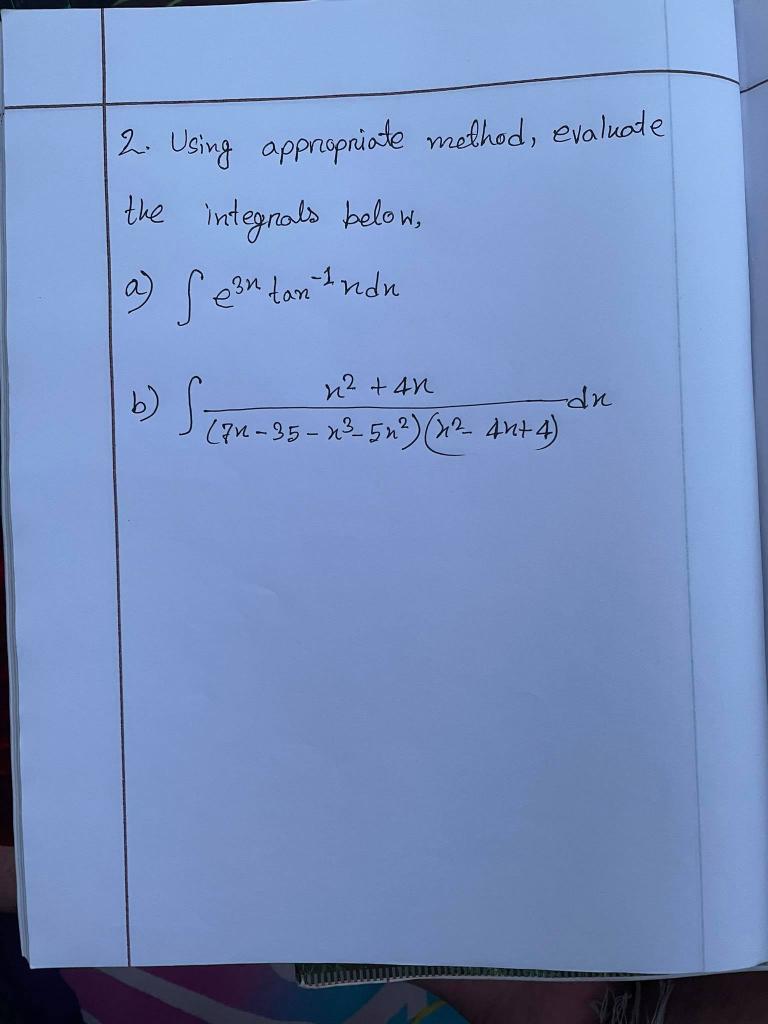 2. Using appropriate method, evaluate
the integrals below,
a) ∫ e^{3x} tan^{-1} x dx
b) ∫ \frac{x^2 + 4x}{(7x - 35 - x^3 - 5x^2)(x^2 - 4x + 4)} dx